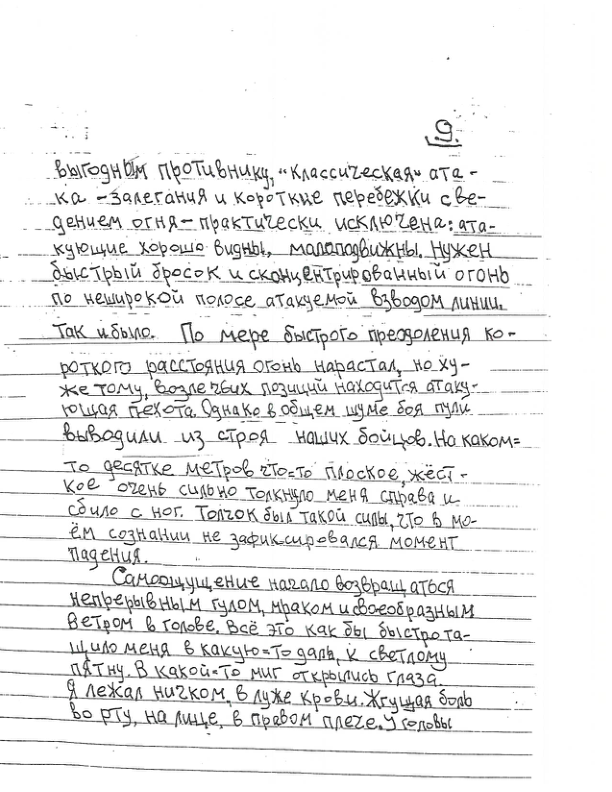 9.
выгодным противнику, "классическая" ата-
ка – залегания и короткие перебежки с ве-
дением огня – практически исключена: ата-
кующие хорошо видны, малоподвижны. Нужен
быстрый бросок и сконцентрированный огонь
по неширокой полосе атакуемой взводом линии.
Так и было. По мере быстрого преодоления ко-
роткого расстояния огонь нарастал, но ху-
же тому, возле чьих позиций находится атаку-
ющая пехота. Однако в общем шуме боя пули
выводили из строя наших бойцов. На каком=
то десятке метров что=то плоское, жёст-
кое очень сильно толкнуло меня справа и
сбило с ног. Толчок был такой силы, что в мо-
ём сознании не зафиксировался момент
падения.
Самоощущение начало возвращаться
непрерывным гулом, мраком и своеобразным
ветром в голове. Всё это как бы быстро та-
щило меня в какую=то даль, к светлому
пятну. В какой=то миг открылись глаза.
Я лежал ничком, в луже крови. Жгущая боль
во рту, на лице, в правом плече. У головы